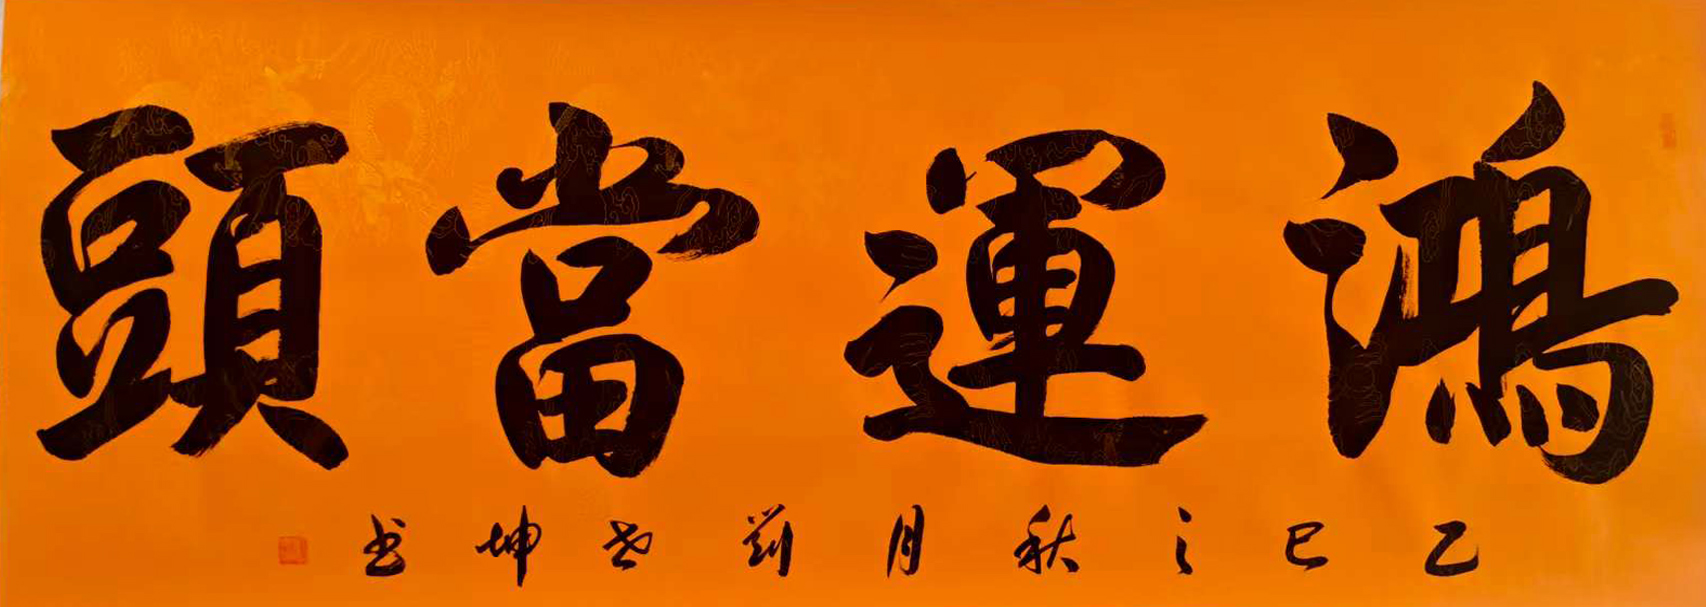 鴻運當頭
乙巳之秋月劉世坤书